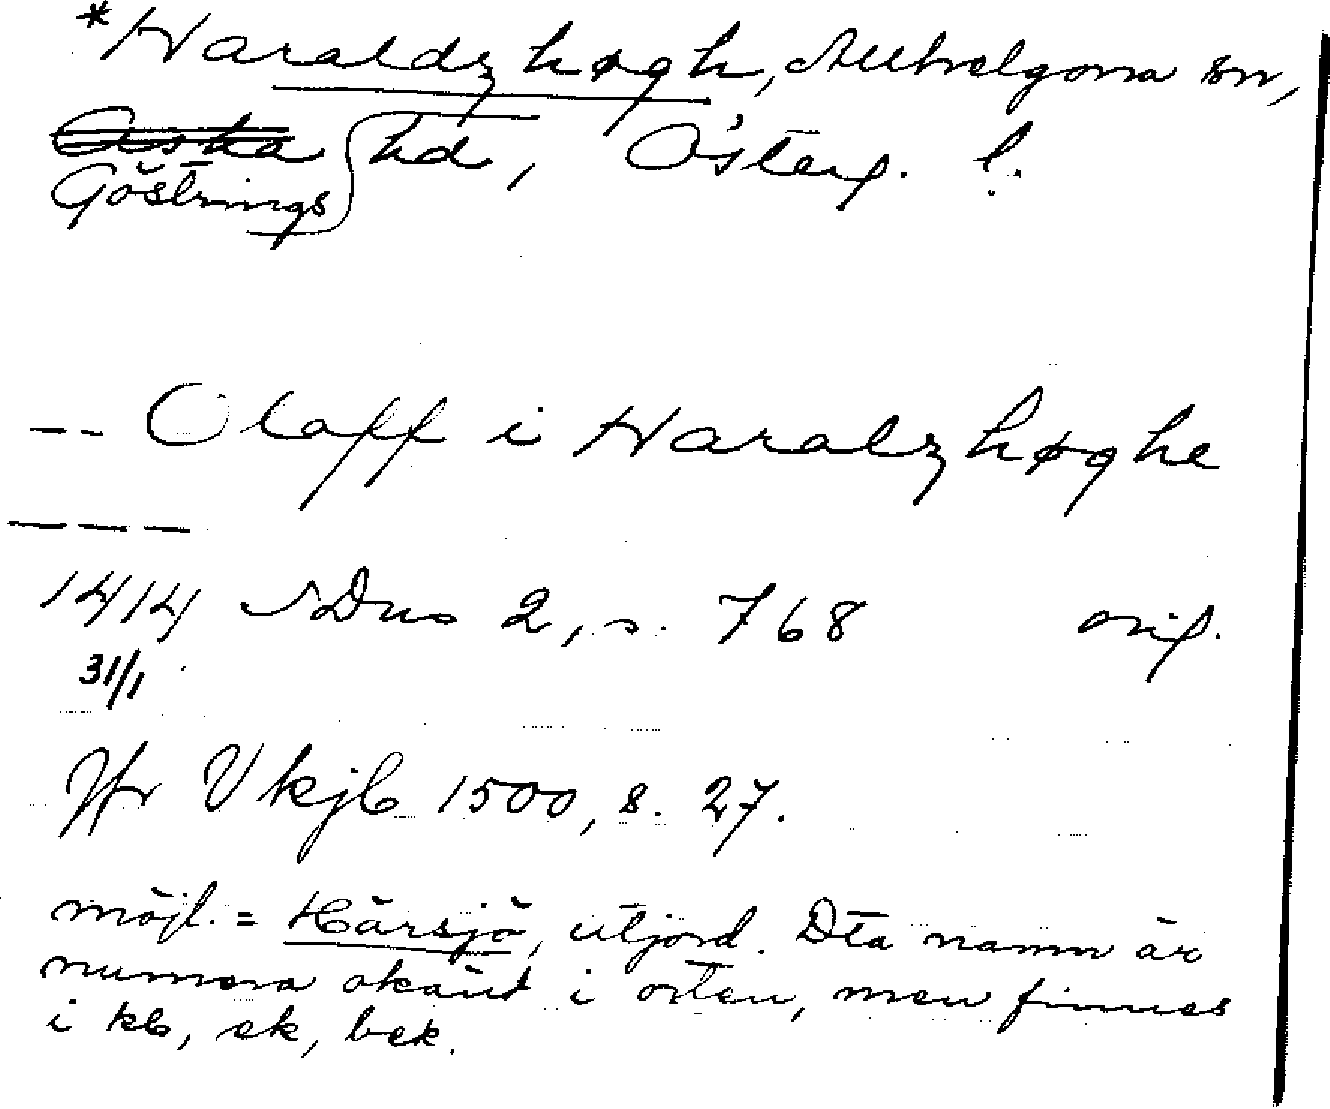 *Haraldzhøgh, Allhelgona sn,
Aska hd, Österg. l.
Göstrings
-- Olaff i Haralzhøghe
---
1414 SDns 2, s. 768 orig.
31/1
Jfr Vkjb 1500, s. 27.
möjl. = Härsjö, utjord. Dta namn är
numera okänt i orten, men finnes
i kb, ek, bek.